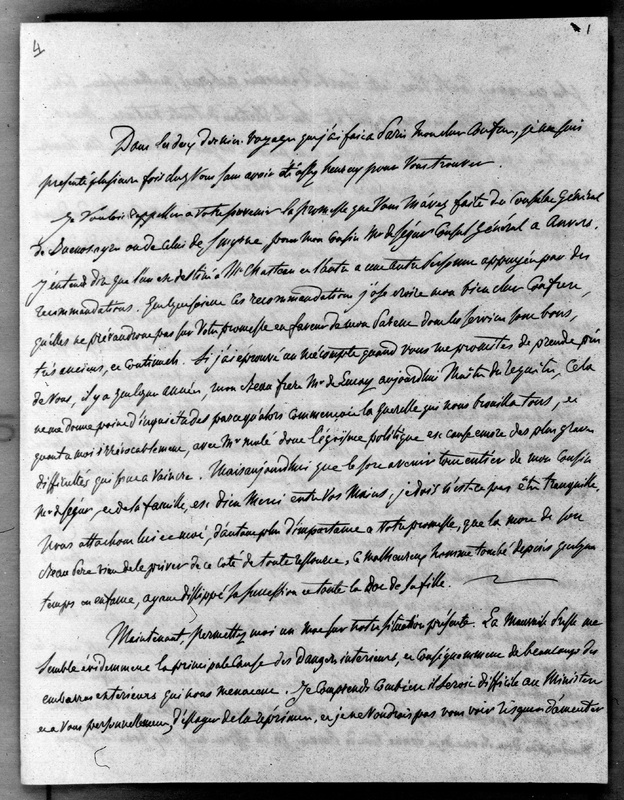 4
1
Dans les deux derniers voyages que j'ai fait à Paris mon cher Confrère, je me suis
présenté plusieurs fois chez vous sans avoir été assez heureux pour vous trouver.
Je voulois rappeller à votre souvenir la promesse que vous m'avez faite du Consulat Général
de Buenosayres ou de celui de Smyrne, pour mon Cousin Mr de Ségur Consul Général a Anvers.
J'entends dire que l'un est destiné à Mr Chasteau et l'autre a une autre personne appuyée par des
recommandations. Quelques soient ces recommandations j'ose croire mon bien cher Confrere,
qu'elles ne prévaudront pas sur votre promesse en faveur de mon Parent dont les services sont bons,
très anciens, et continuels. Si j'ai éprouvé un mécompte quand vous me promites de prendre près
de vous, il y a quelques années, mon beau frere Mr de aujourdhui Maître des requêtes, cela
ne me donne point d'inquiétudes parce qu'alors commençoit la querelle qui nous brouilla tous, et
quant a moi irrévocablement, avec Mr molé dont l'égoïsme politique est cause encore des plus graves
difficultés qui soient a vaincre. Mais aujourdhui que le sort avenir tout entier de mon Cousin
Mr de Ségur, et de sa famille, est dieu merci entre vos mains, je dois n'est ce pas être tranquille.
Nous attachons lui et moi, d'autant plus d'importance a votre promesse, que la mort de son
beau Pere vient de le priver de ce coté de toute ressource, ce malheureux homme tombé depuis quelque
temps en enfance, ayant dissippé sa succession et toute la Dot de sa fille.
Maintenant, permettez moi un mot sur notre situation présente. La mauvaise Presse me
semble évidemment la principale cause des dangers interieurs, et conséquemment de beaucoup des
embarras exterieurs qui nous menacent. Je comprends combien il seroit difficile au Ministère
et a vous personnellement, d'essayer de la réprimer, et je ne voudrois pas vous voir risquer d'